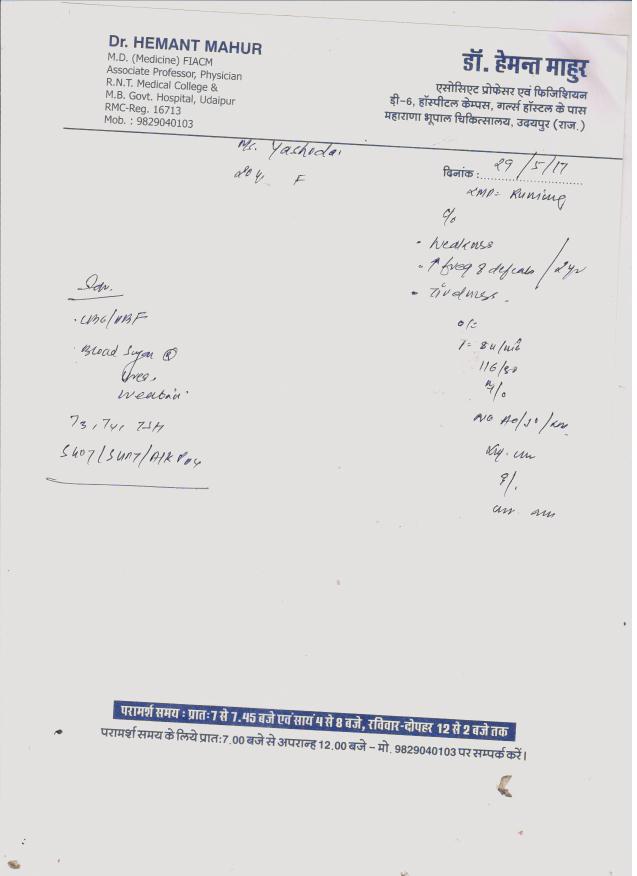 Dr. HEMANT MAHUR
M.D. (Medicine) FIACM
Associate Professor, Physician
R.N.T. Medical College &
M.B. Govt. Hospital, Udaipur
RMC-Reg. 16713
Mob. : 9829040103
डॉ. हेमन्त माहुर
एसोसिएट प्रोफेसर एवं फिजिशियन
डी-6, हॉस्पीटल केम्पस, गर्ल्स हॉस्टल के पास
महाराणा भूपाल चिकित्सालय, उदयपुर (राज.)
Ms. Yashoda
20 y. F
दिनांक : 29/5/17
LMP= Running
c/o
• Weakness
• ↑ freq
• Tiredness.
o/e
84/mt
116/80
Blood Sugar
Urea,
T3, T4, TSH
SGOT/SGPT/Alk PO4
परामर्श समय : प्रातः 7 से 7.45 बजे एवं सायं 4 से 8 बजे, रविवार-दोपहर 12 से 2 बजे तक
परामर्श समय के लिये प्रातः 7.00 बजे से अपरान्ह 12.00 बजे – मो. 9829040103 पर सम्पर्क करें।